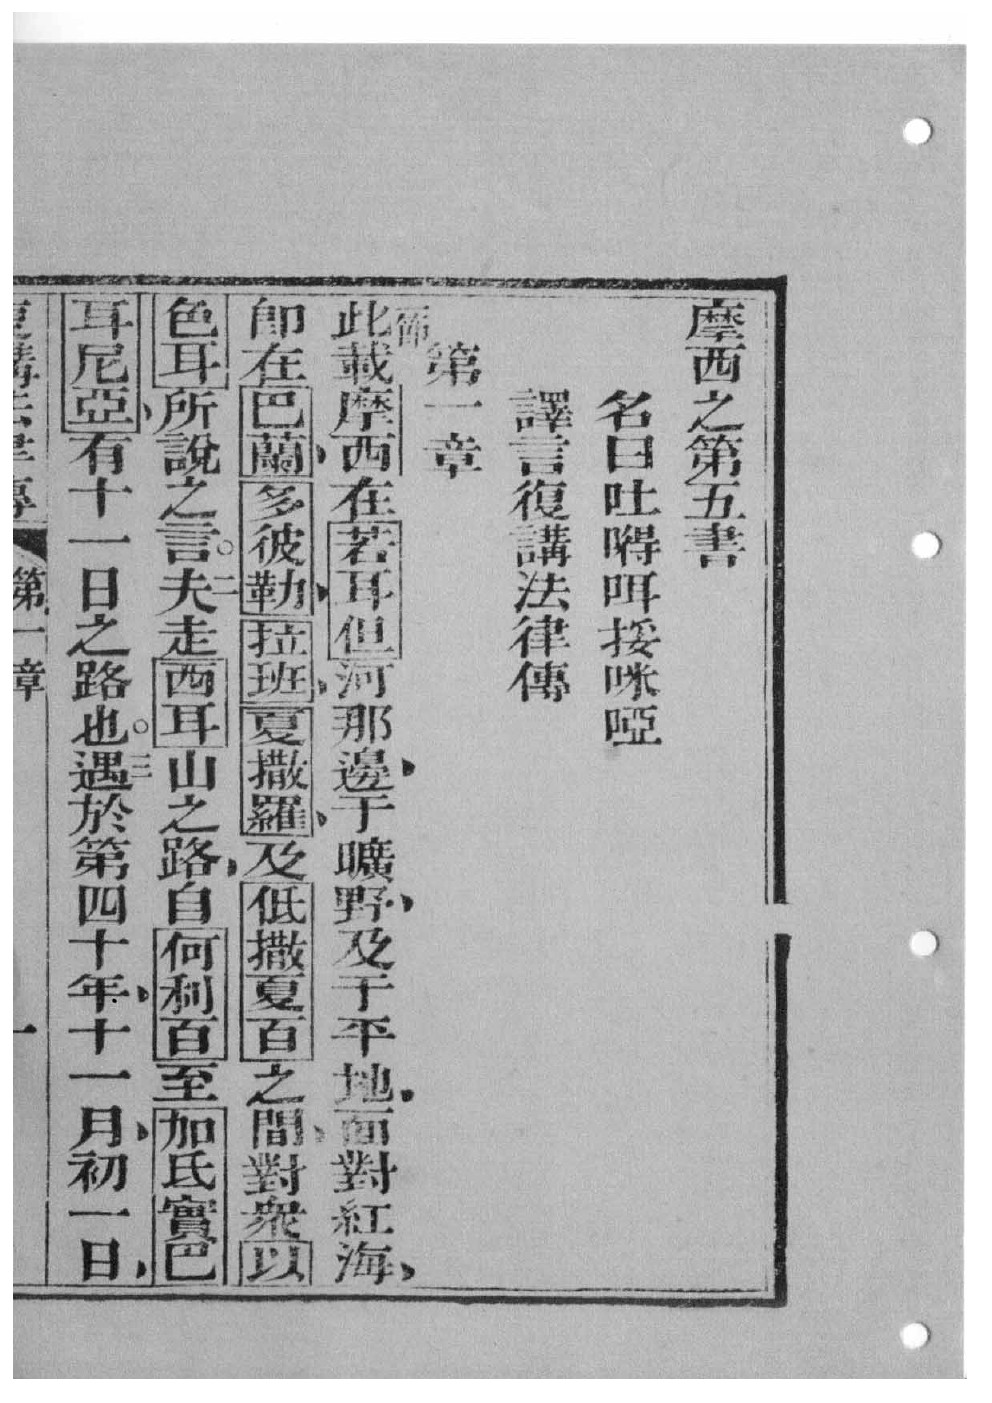 摩西之第五書
名曰吐嘚咡挼咪啞
譯言復講法律傳
第一章
此載摩西在若耳但河那邊于曠野及于平地面對紅海
即在巴蘭多彼勒拉班夏撒羅及低撒夏百之間對衆以
色耳所說之言。二夫走西耳山之路自何利百至加氏實巴
耳尼亞有十一日之路也。三遇於第四十年十一月初一日
復講法律傳 第一章 一